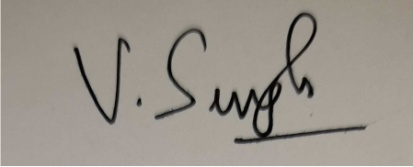 V. Singh